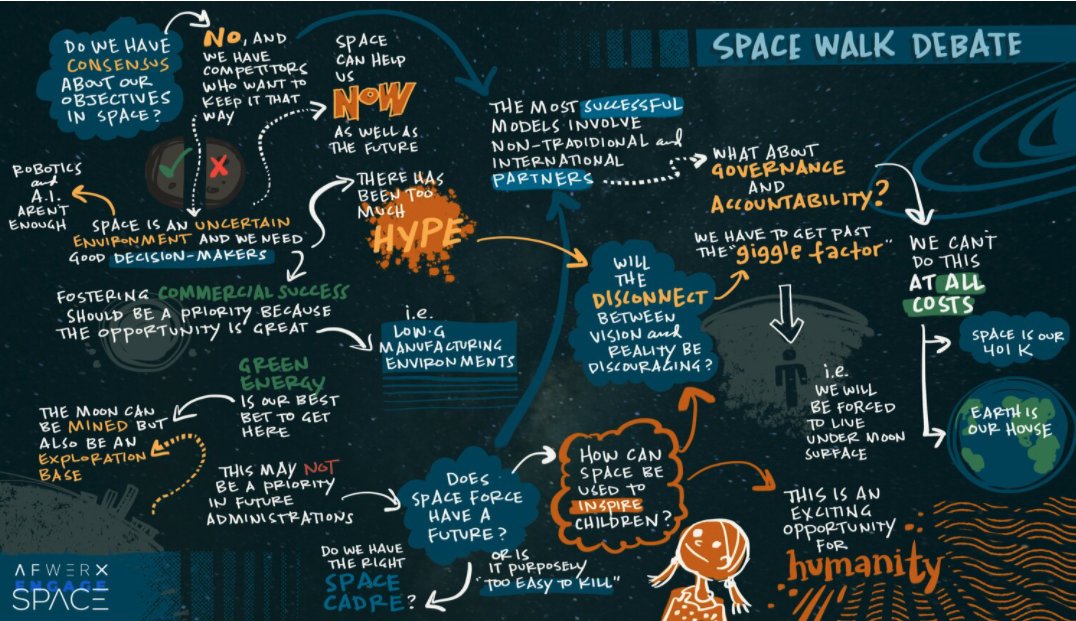 SPACE WALK DEBATE
DO WE HAVE
CONSENSUS
ABOUT OUR
OBJECTIVES
IN SPACE?
NO, AND
WE HAVE
COMPETITORS
WHO WANT TO
KEEP IT THAT
WAY
SPACE
CAN HELP
US
NOW
AS WELL AS
THE FUTURE
ROBOTICS
and
A.I.
AREN'T
ENOUGH
SPACE IS AN UNCERTAIN
ENVIRONMENT AND WE NEED
GOOD DECISION-MAKERS
THERE HAS
BEEN TOO
MUCH
HYPE
THE MOST SUCCESSFUL
MODELS INVOLVE
NON-TRADIDIONAL and
INTERNATIONAL
PARTNERS
WHAT ABOUT
GOVERNANCE
AND
ACCOUNTABILITY?
WE HAVE TO GET PAST
THE "giggle factor"
WE CAN'T
DO THIS
AT ALL
COSTS
SPACE IS OUR
401 K
EARTH IS
OUR HOUSE
FOSTERING COMMERCIAL SUCCESS
SHOULD BE A PRIORITY BECAUSE
THE OPPORTUNITY IS GREAT
i.e.
LOW-G
MANUFACTURING
ENVIRONMENTS
WILL
THE
DISCONNECT
BETWEEN
VISION and
REALITY BE
DISCOURAGING?
i.e.
WE WILL
BE FORCED
TO LIVE
UNDER MOON
SURFACE
GREEN
ENERGY
IS OUR BEST
BET TO GET
HERE
THE MOON CAN
BE MINED BUT
ALSO BE AN
EXPLORATION
BASE
THIS MAY NOT
BE A PRIORITY
IN FUTURE
ADMINISTRATIONS
DOES
SPACE FORCE
HAVE A
FUTURE?
HOW CAN
SPACE BE
USED TO
INSPIRE
CHILDREN?
THIS IS AN
EXCITING
OPPORTUNITY
FOR
humanity
DO WE HAVE
THE RIGHT
SPACE
CADRE?
OR IS
IT PURPOSELY
"TOO EASY TO KILL"
AFWERX
ENGAGE
SPACE